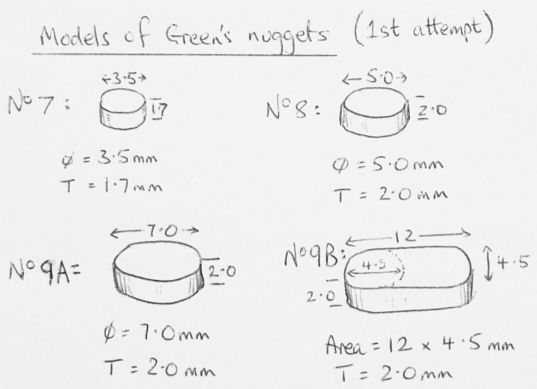 Models of Green's nuggets (1st attempt)
←3.5→
Nº 7: 1.7
φ = 3.5 mm
T = 1.7 mm
←5.0→
Nº 8: 2.0
φ = 5.0 mm
T = 2.0 mm
←7.0→
Nº 9A= 2.0
φ = 7.0 mm
T = 2.0 mm
←12→
Nº 9B: 4.5 4.5
2.0
Area = 12 × 4.5 mm
T = 2.0 mm